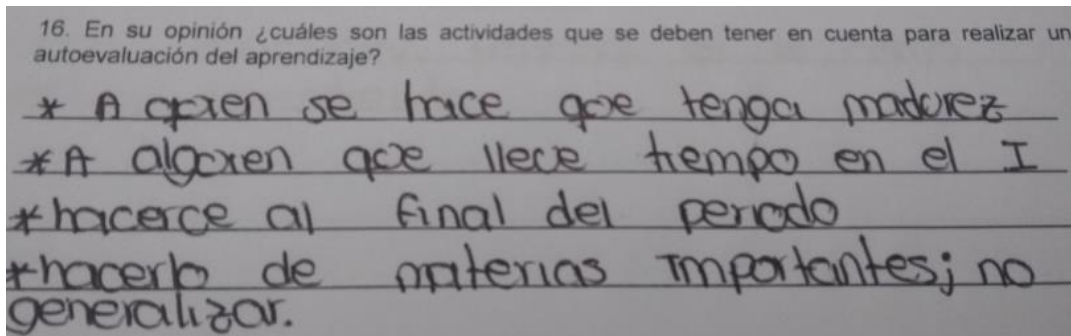 16. En su opinión ¿cuáles son las actividades que se deben tener en cuenta para realizar un
autoevaluación del aprendizaje?
* A quien se hace que tenga madurez
* A alguien que llece tiempo en el I
* hacerce al final del periodo
* hacerlo de materias importantes; no
generalizar.